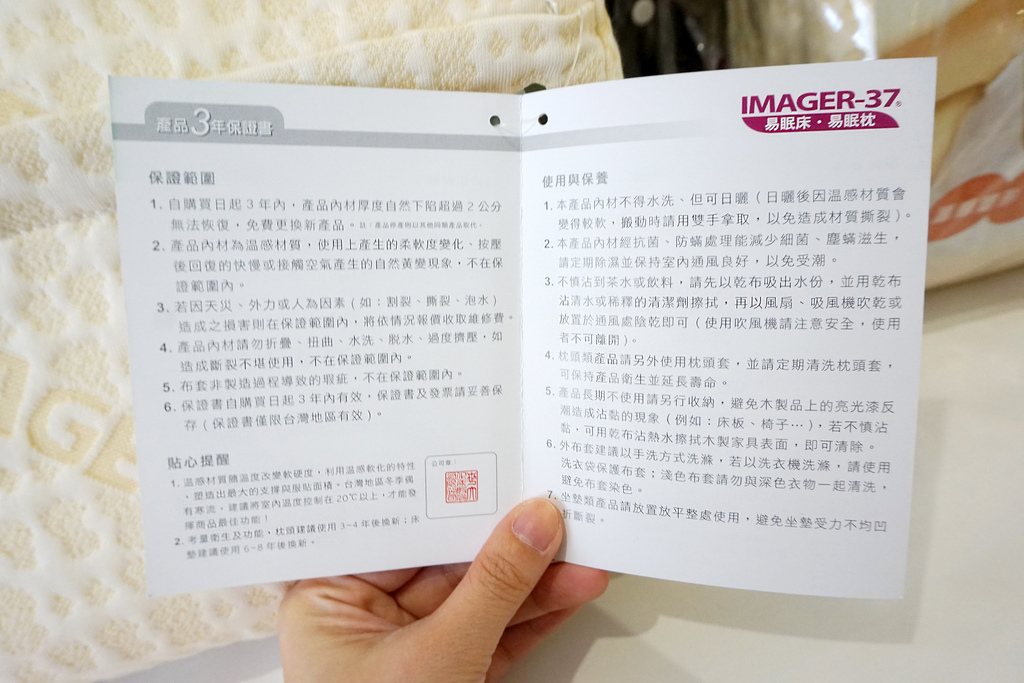 產品3年保證書
保證範圍
1. 自購買日起3年內，產品內材厚度自然下陷超過2公分
無法恢復，免費更換新產品。註：產品停產則以其他同類產品取代。
2. 產品內材為溫感材質，使用上產生的柔軟度變化、按壓
後回復的快慢或接觸空氣產生的自然黃變現象，不在保
證範圍內。
3. 若因天災、外力或人為因素（如：割裂、撕裂、泡水）
造成之損害則在保證範圍內，將依情況報價收取維修費。
4. 產品內材請勿折疊、扭曲、水洗、脫水、過度擠壓，如
造成斷裂不堪使用，不在保證範圍內。
5. 布套非製造過程導致的瑕疵，不在保證範圍內。
6. 保證書自購買日起3年內有效，保證書及發票請妥善保
存（保證書僅限台灣地區有效）。
貼心提醒
1. 溫感材質隨溫度改變軟硬度，利用溫感軟化的特性
，塑造出最大的支撐與服貼面積。台灣地區冬季偶
有寒流，建議將室內溫度控制在20℃以上，才能發
揮商品最佳功能！
2. 考量衛生及功能，枕頭建議使用3~4年後換新；床
墊建議使用6~8年後換新。
公司章：
IMAGER-37®
易眠床・易眠枕
使用與保養
1. 本產品內材不得水洗、但可日曬（日曬後因溫感材質會
變得較軟，搬動時請用雙手拿取，以免造成材質撕裂）。
2. 本產品內材經抗菌、防蟎處理能減少細菌、塵蟎滋生，
請定期除濕並保持室內通風良好，以免受潮。
3. 不慎沾到茶水或飲料，請先以乾布吸出水份，並用乾布
沾清水或稀釋的清潔劑擦拭，再以風扇、吸風機吹乾或
放置於通風處陰乾即可（使用吹風機請注意安全，使用
者不可離開）。
4. 枕頭類產品請另外使用枕頭套，並請定期清洗枕頭套，
可保持產品衛生並延長壽命。
5. 產品長期不使用請另行收納，避免木製品上的亮光漆反
潮造成沾黏的現象（例如：床板、椅子…），若不慎沾
黏，可用乾布沾熱水擦拭木製家具表面，即可清除。
6. 外布套建議以手洗方式洗滌，若以洗衣機洗滌，請使用
洗衣袋保護布套；淺色布套請勿與深色衣物一起清洗，
避免布套染色。
7. 坐墊類產品請放置放平整處使用，避免坐墊受力不均凹
折斷裂。